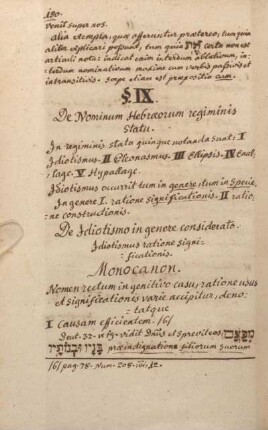 180.
venit super nos.
Alia exempla, quae afferuntur praetereo; tum quia
aliter explicari possunt, tum quia את certo non est
articuli nota: indicat enim interdum ablativum, in-
terdum nominativum maxime cum verbis passivis et
intransitivis. saepe etiam est praepositio cum.
§. IX.
De Nominum Hebraeorum regiminis
statu.
In regiminis statu quinque notanda sunt: I
Idiotismus. II Pleonasmus. III Ellipsis. IV Enal-
lage. V Hypallage.
Idiotismus occurrit tum in genere tum in specie.
In genere I. ratione significationis. II ratio-
ne constructionis.
De Idiotismo in genere considerato.
Idiotismus ratione signi-
ficationis.
Monocanon.
Nomen rectum in genitivo casu, ratione usus
et significationis varie accipitur, deno-
tatque
I Causam efficientem. /6/
Deut. 32. v. 19. vidit Dnus et sprevit eos מִכַּעַס
בָּנָיו וּבְנוֹתָיו prae indignatione filiorum suorum
/6/ pag. 78. Num. 208.